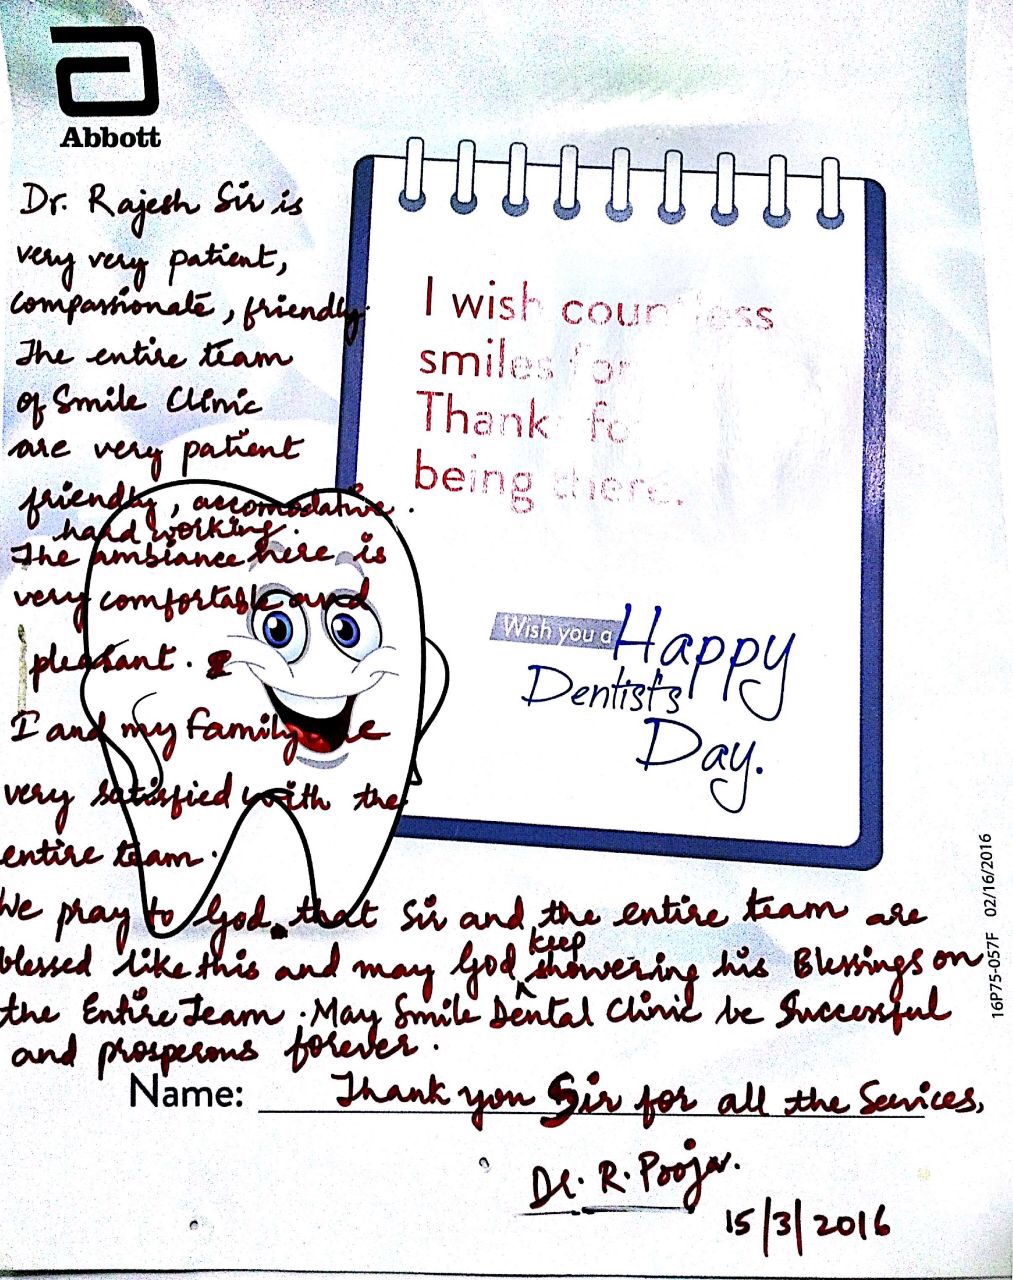 Abbott
Dr. Rajesh Sir is
very very patient,
compassionate, friendly.
The entire team
of Smile Clinic
are very patient
friendly, accomodative.
hard working.
The ambiance here is
very comfortable and
pleasant.
I and my family are
very satisfied with the
entire team.
I wish countless
smiles for
Thanks for
being there.
Wish you a Happy
Dentist's
Day.
We pray to God that Sir and the entire team are
keep
blessed like this and may God showering his Blessings on
the Entire Team. May Smile Dental Clinic be Successful
and prosperous forever.
Name: Thank you Sir for all the Services,
Dr. R. Pooja.
15/3/2016
16P75-057F 02/16/2016